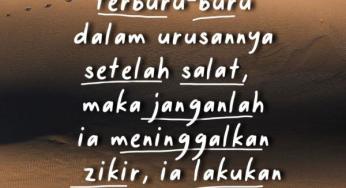 Terburu-buru
dalam urusannya
setelah salat,
maka janganlah
ia meninggalkan
zikir, ia lakukan